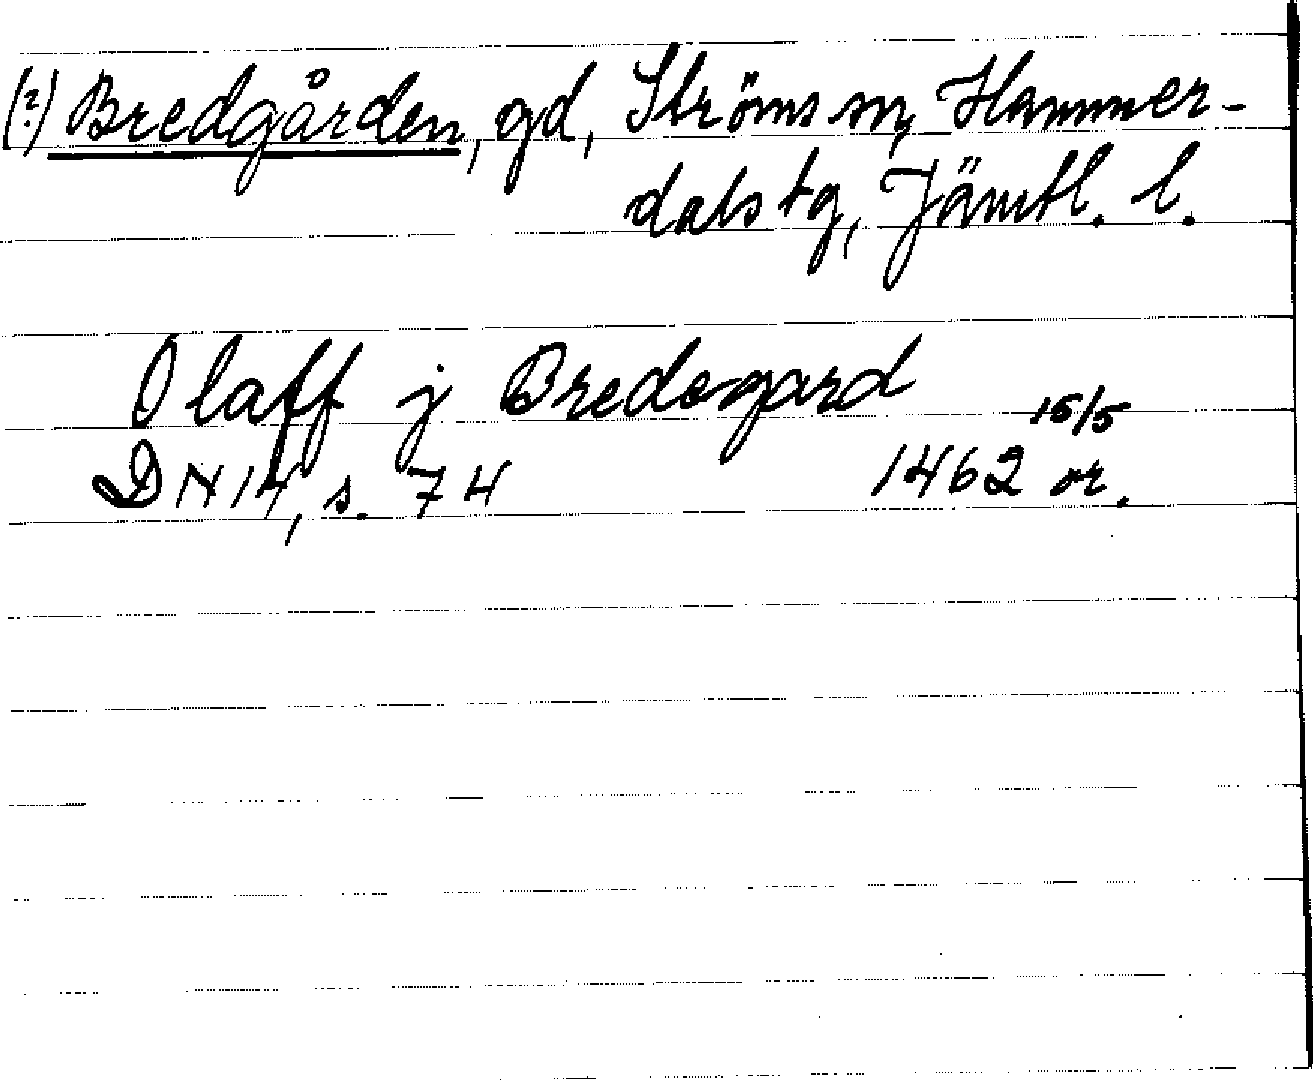 (?) Bredgården, gd, Ströms sn, Hammer-
dals tg, Jämtl. l.
Olaff j Bredegard
15/5
DN 14, s. 74 1462 or.